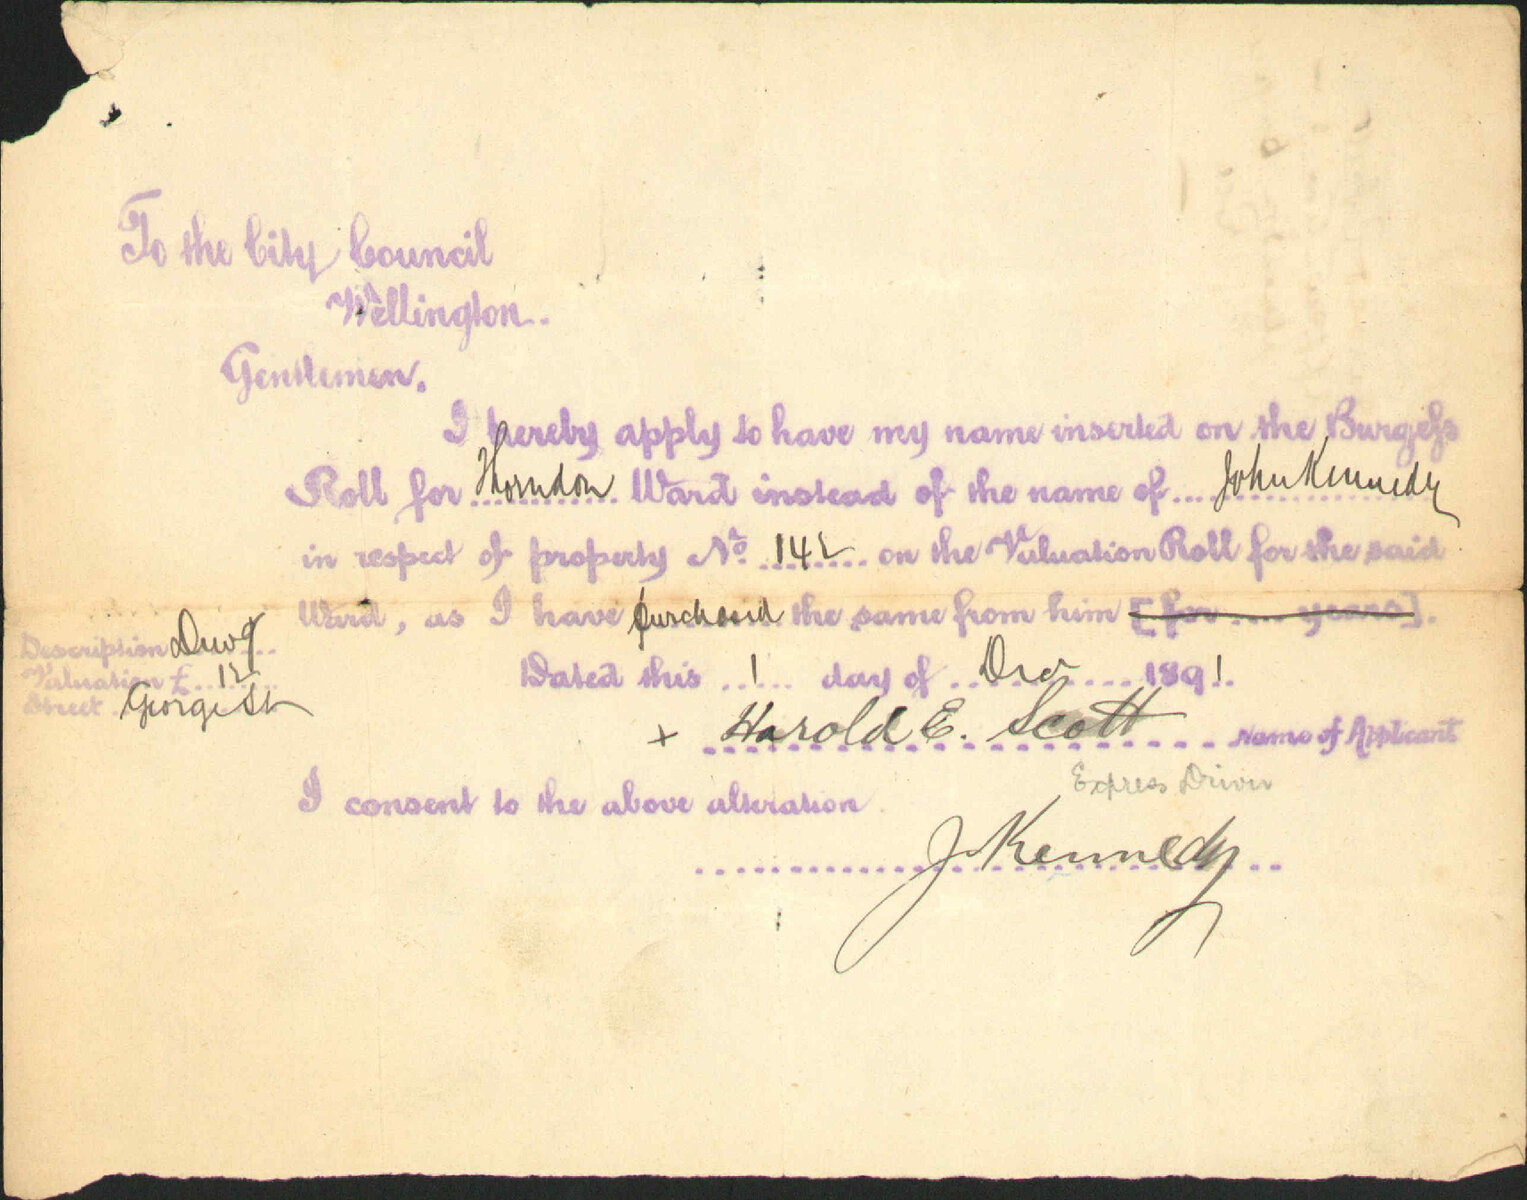 To the City Council
Wellington..
Gentlemen.
I hereby apply to have my name inserted on the Burgess
Roll for Thorndon Ward instead of the name of John Kennedy
in respect of property No. 142 on the Valuation Roll for the said
Ward, as I have purchased the same from him [for .... years].
Description Dwg
Valuation £ 12
Street George St
Dated this 1 day of Dec 1891.
x Harold E. Scott Name of Applicant
Express Driver
I consent to the above alteration
J Kennedy